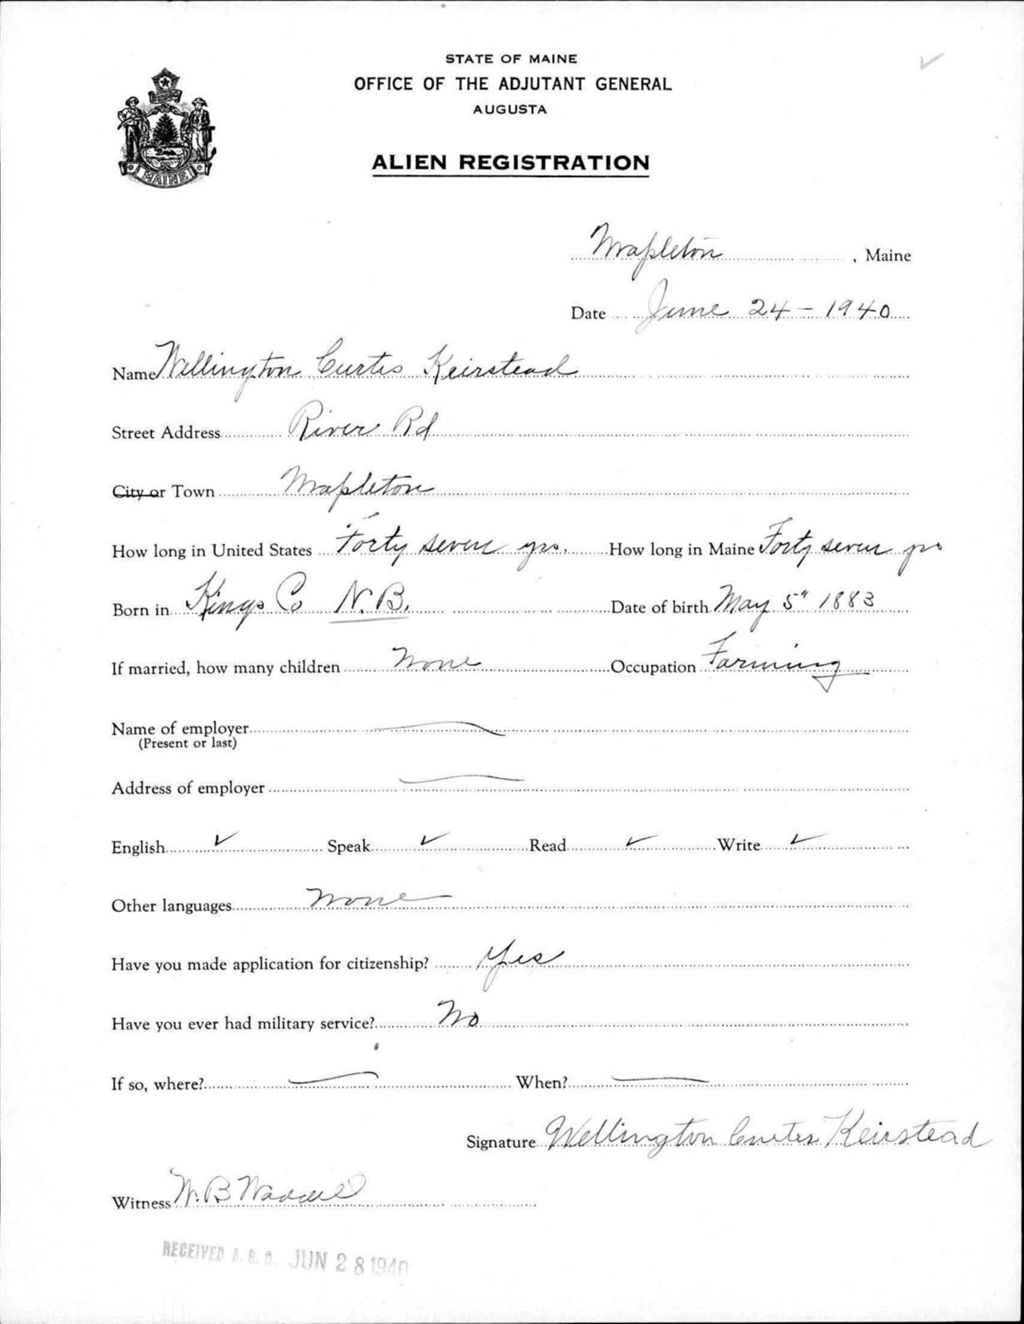 STATE OF MAINE
OFFICE OF THE ADJUTANT GENERAL
AUGUSTA
ALIEN REGISTRATION
MAINE
Mapleton, Maine
Date June 24 - 1940
Name Wellington Curtis Keirstead
Street Address River Rd
City or Town Mapleton
How long in United States Forty seven yrs. How long in Maine Forty seven yrs
Born in Kings Co N.B. Date of birth May 5" 1883
If married, how many children None Occupation Farming
Name of employer
(Present or last)
Address of employer
English ✓ Speak ✓ Read ✓ Write ✓
Other languages None
Have you made application for citizenship? Yes
Have you ever had military service? No
If so, where? — When? —
Signature Wellington Curtis Keirstead
Witness W. B. Waddell
RECEIVED A. G. O. JUN 28 1940